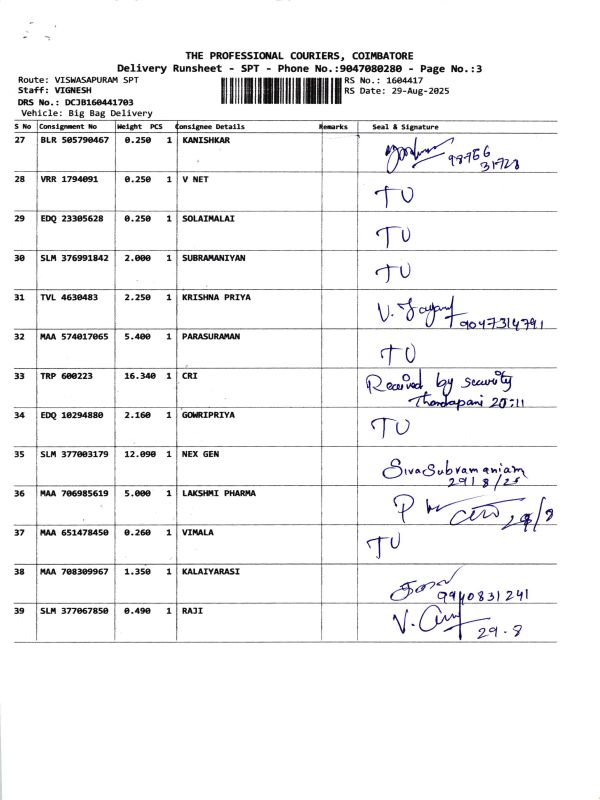 THE PROFESSIONAL COURIERS, COIMBATORE
Delivery Runsheet - SPT - Phone No.:9047080280 - Page No.:3
Route: VISWASAPURAM SPT RS No.: 1604417
Staff: VIGNESH RS Date: 29-Aug-2025
DRS No.: DCJB160441703
Vehicle: Big Bag Delivery
S No Consignment No Weight PCS Consignee Details Remarks Seal & Signature
27 BLR 505790467 0.250 1 KANISHKAR
28 VRR 1794091 0.250 1 V NET TU
29 EDQ 23305628 0.250 1 SOLAIMALAI TU
30 SLM 376991842 2.000 1 SUBRAMANIYAN TU
31 TVL 4630483 2.250 1 KRISHNA PRIYA V.
9047314791
32 MAA 574017065 5.400 1 PARASURAMAN TU
33 TRP 600223 16.340 1 CRI Received by security
Thandapani 20:11
34 EDQ 10294880 2.160 1 GOWRIPRIYA TU
35 SLM 377003179 12.090 1 NEX GEN SivaSubramaniam
29/8/25
36 MAA 706985619 5.000 1 LAKSHMI PHARMA P 29/8
37 MAA 651478450 0.260 1 VIMALA TU
38 MAA 708309967 1.350 1 KALAIYARASI
9940831241
39 SLM 377067850 0.490 1 RAJI V.
29.8